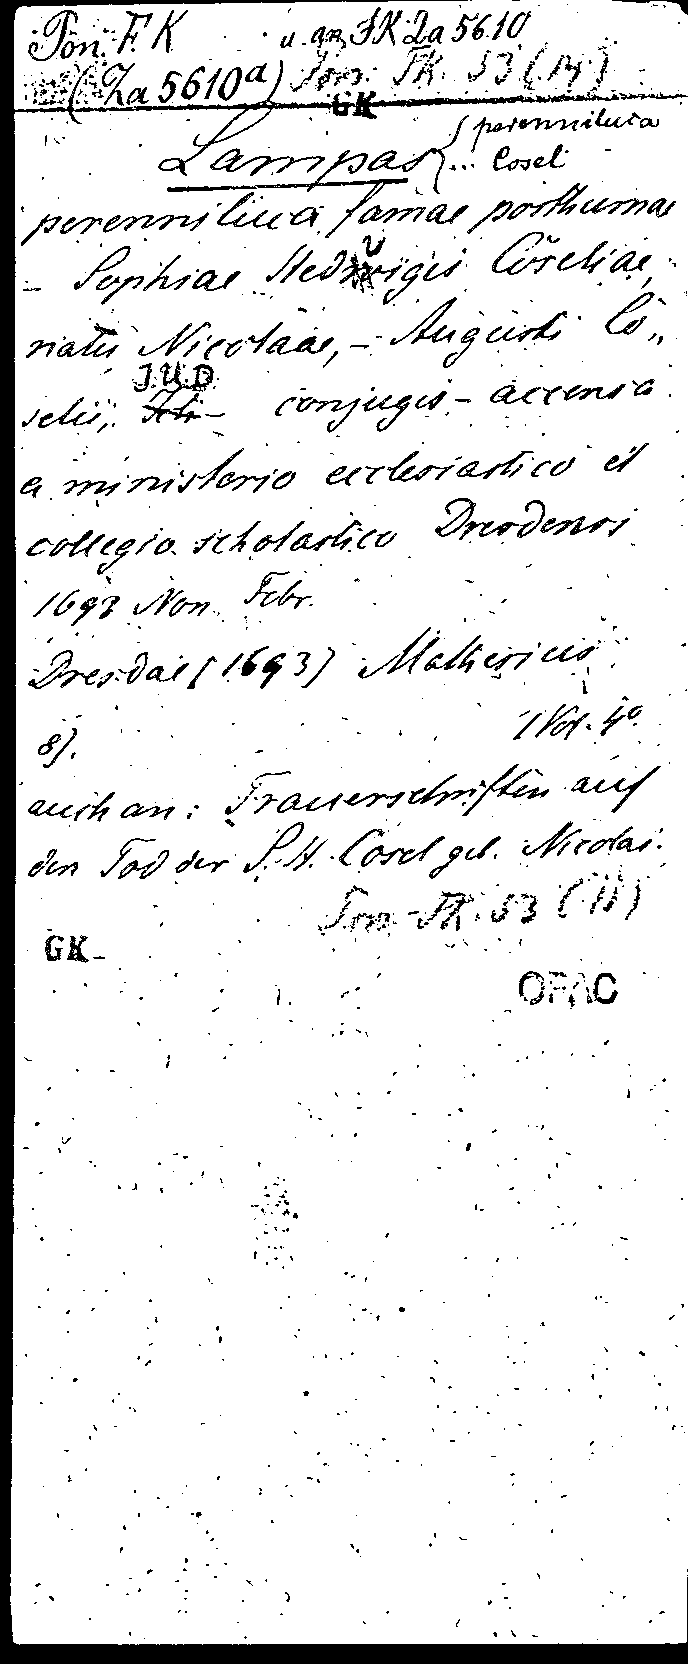 Pon. F. K u. an FK Za 5610
(Za 5610a) Pon. FK. 53 (14)
GK
Lampas { perenniluca
... Cosel
perenniluca famae posthumae
- Sophiae Hedvigis Cöseliae,
natis Nicolaae, - Augusti Cö„
selii, J.U.D. - conjugis - accensa
a ministerio ecclesiastico et
collegio scholastico Dresdensi
1693 Non. Febr.
Dresdae [1693] Mathesius
8). 1 Vol. 4°
auch an: Trauerschriften auf
den Tod der S. H. Cosel geb. Nicolai.
Pon FK. 53 (11)
GK -
OPAC